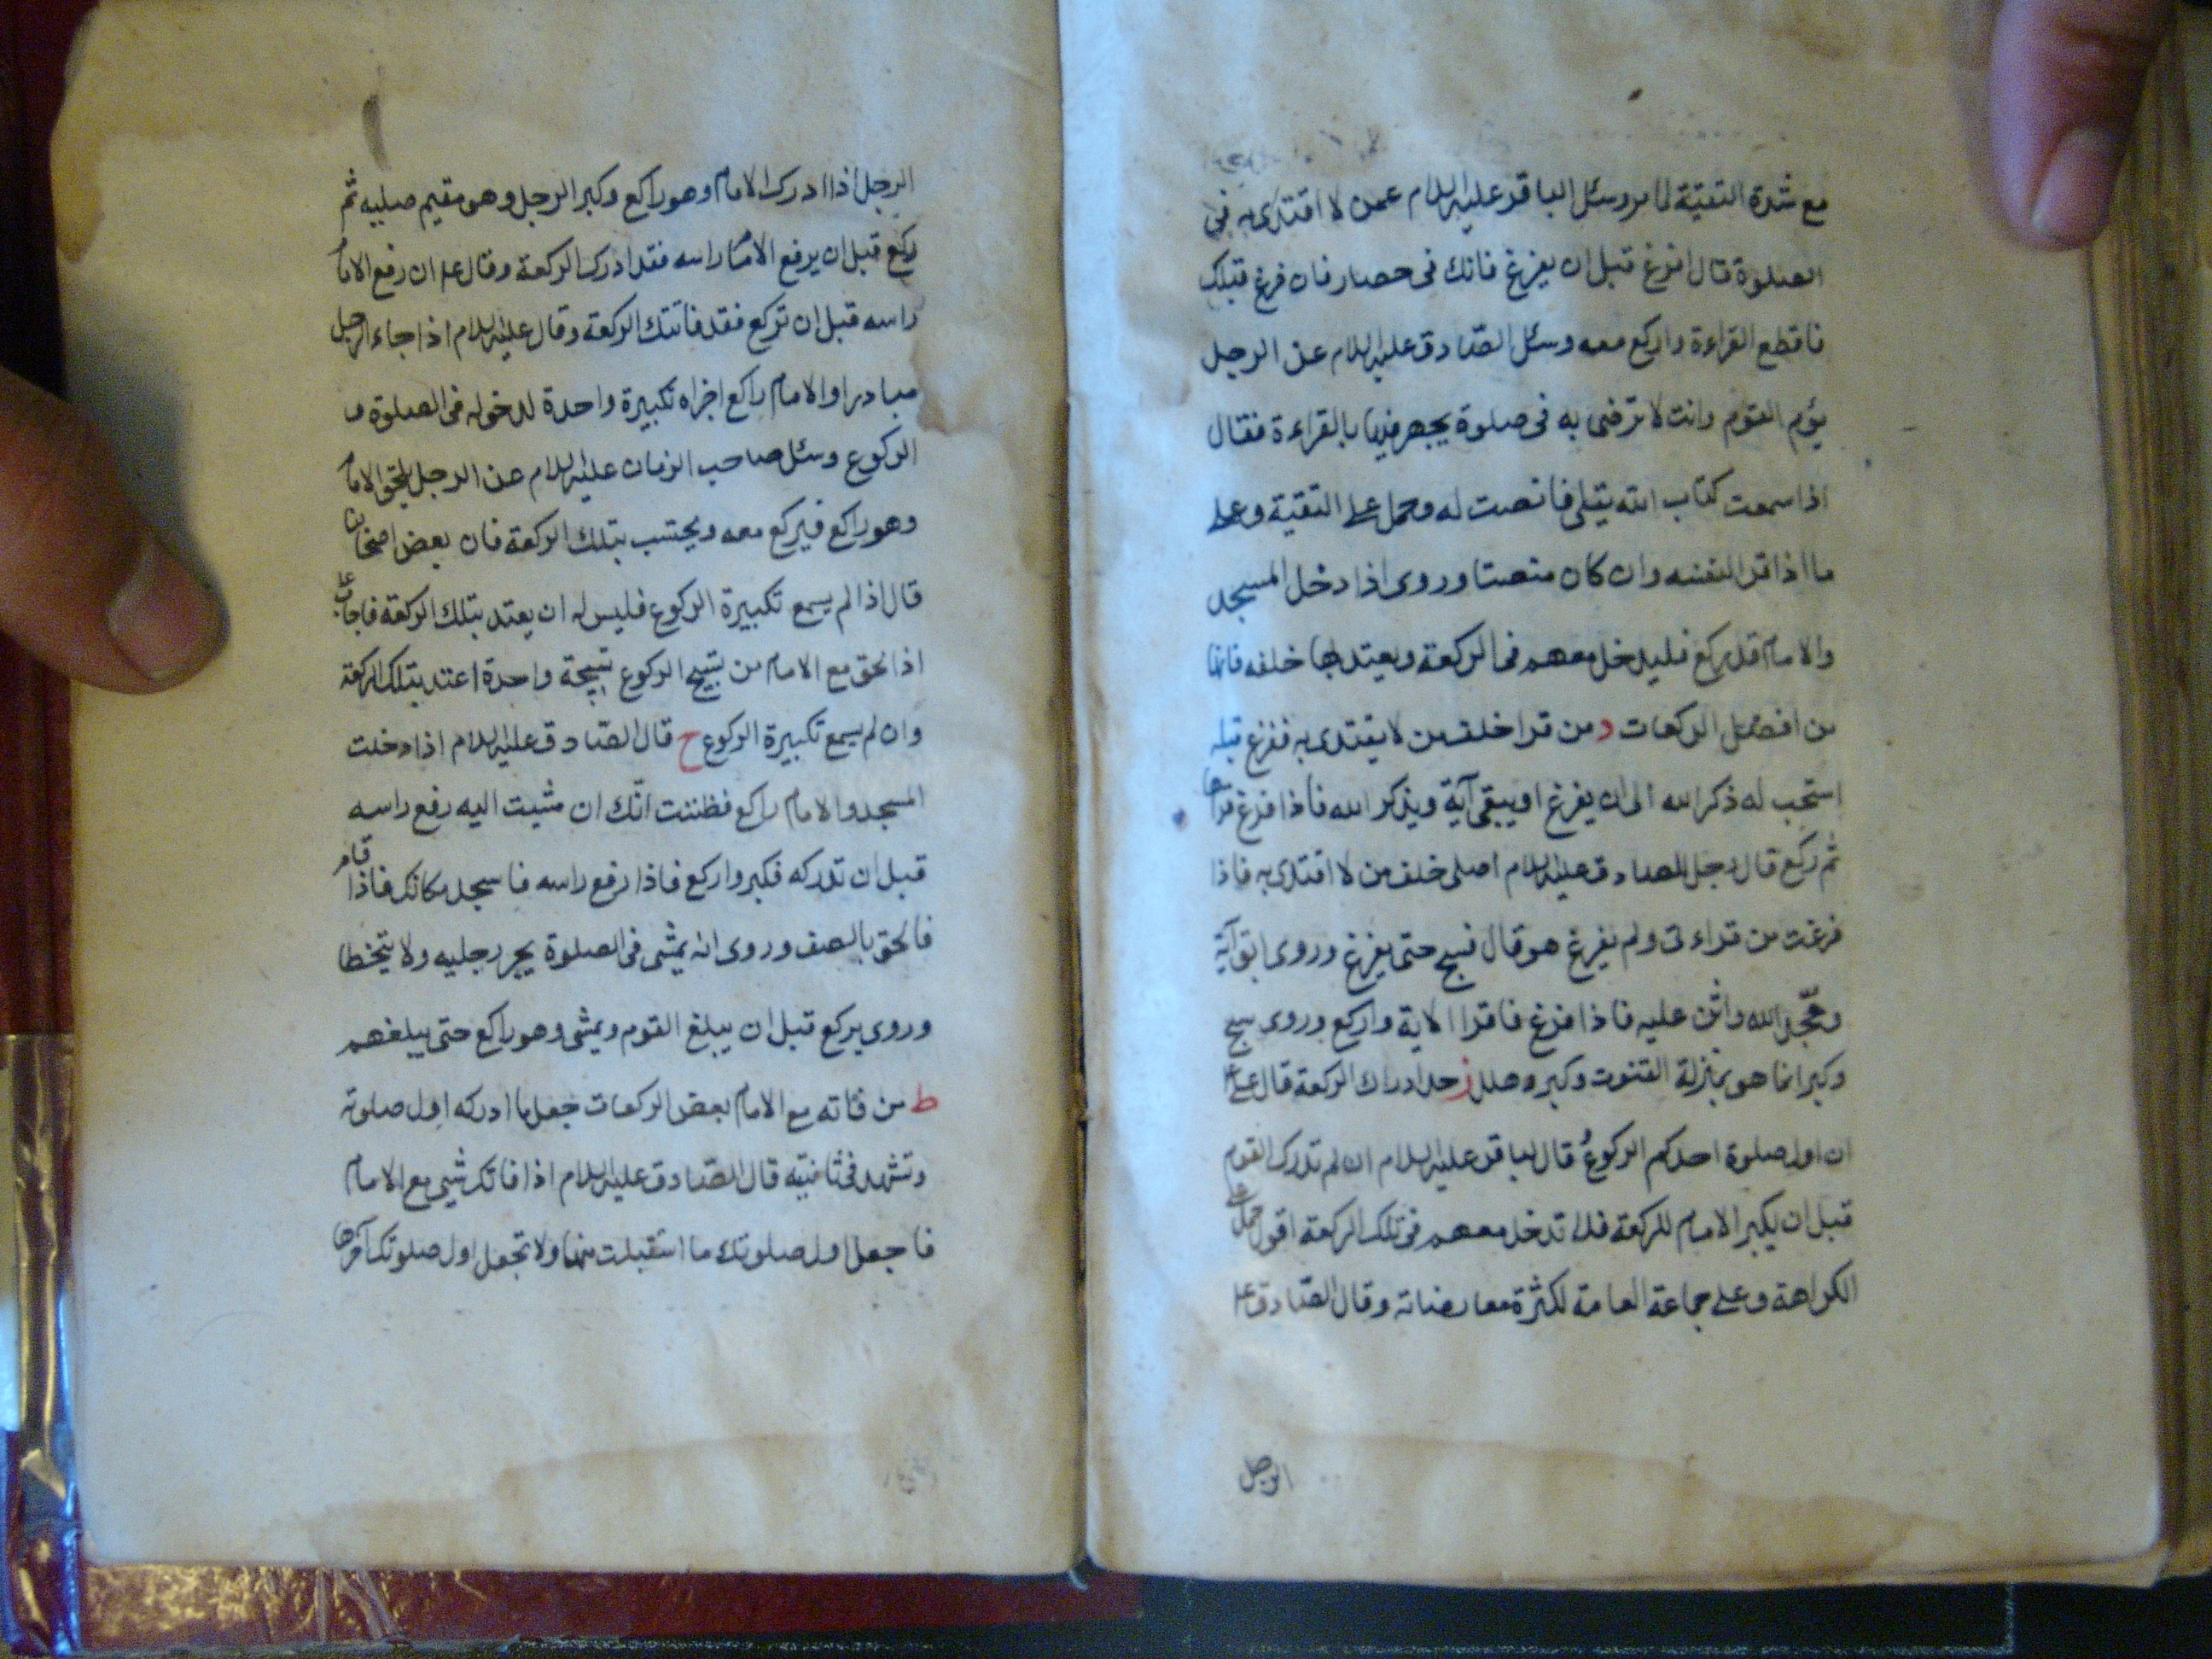 مع شدة التقية لما مر وسئل الباقر عليه السلام عمن لا اقتدى به في
الصلوة قال افرغ قبل ان يفرغ فانك في حصار فان فرغ قبلك
فاقطع القراءة واركع معه وسئل الصادق عليه السلام عن الرجل
يؤم القوم وانت لا ترضى به في صلوة يجهر فيها بالقراءة فقال
اذا سمعت كتاب الله يتلى فانصت له وحمل على التقية وعلى
ما اذا قرا لنفسه وان كان منصتا وروى اذا دخل المسجد
والامام قد ركع فليدخل معهم في الركعة ويعتد بها خلفه فانها
من افضل الركعات و من قرا خلف من لا يقتدى به ففرغ قبله
استحب له ذكر الله الى ان يفرغ او يبقى آية ويذكر الله فاذا فرغ قراها
ثم ركع قال رجل للصادق عليه السلام اصلى خلف من لا اقتدى به فاذا
فرغت من قراءتى ولم يفرغ هو قال فسبح حتى يفرغ وروى ابق آية
ومجد الله واثن عليه فاذا فرغ فاقرا الاية واركع وروى سبح
وكبر انما هو بمنزلة القنوت وكبر وهلل ز حد ادراك الركعة قال ع
ان اول صلوة احدكم الركوع قال الباقر عليه السلام ان لم تدرك القوم
قبل ان يكبر الامام للركعة فلا تدخل معهم في تلك الركعة اقول حمل على
الكراهة وعلى جماعة العامة لكثرة معارضاته وقال الصادق ع
الرجل
الرجل اذا ادرك الامام وهو راكع وكبر الرجل وهو مقيم صلبه ثم
ركع قبل ان يرفع الامام راسه فقد ادرك الركعة وقال ع ان رفع الامام
راسه قبل ان تركع فقد فاتتك الركعة وقال عليه السلام اذا جاء الرجل
مبادرا والامام راكع اجزاه تكبيرة واحدة لدخوله في الصلوة و
الركوع وسئل صاحب الزمان عليه السلام عن الرجل يلحق الامام
وهو راكع فيركع معه ويحتسب بتلك الركعة فان بعض اصحابنا
قال اذا لم يسمع تكبيرة الركوع فليس له ان يعتد بتلك الركعة فاجاب ع
اذا لحق مع الامام من تسبيح الركوع تسبيحة واحدة اعتد بتلك الركعة
وان لم يسمع تكبيرة الركوع ح قال الصادق عليه السلام اذا دخلت
المسجد والامام راكع فظننت انك ان مشيت اليه رفع راسه
قبل ان تدركه فكبر واركع فاذا رفع راسه فاسجد مكانك فاذا قام
فالحق بالصف وروى انه يمشى في الصلوة يجر رجليه ولا يتخطا
وروى يركع قبل ان يبلغ القوم ويمشى وهو راكع حتى يبلغهم
ط من فاته مع الامام بعض الركعات جعل ما ادركه اول صلوته
وتشهد في ثانيته قال الصادق عليه السلام اذا فاتك شيئ مع الامام
فاجعل اول صلوتك ما استقبلت منها ولا تجعل اول صلوتك آخرها